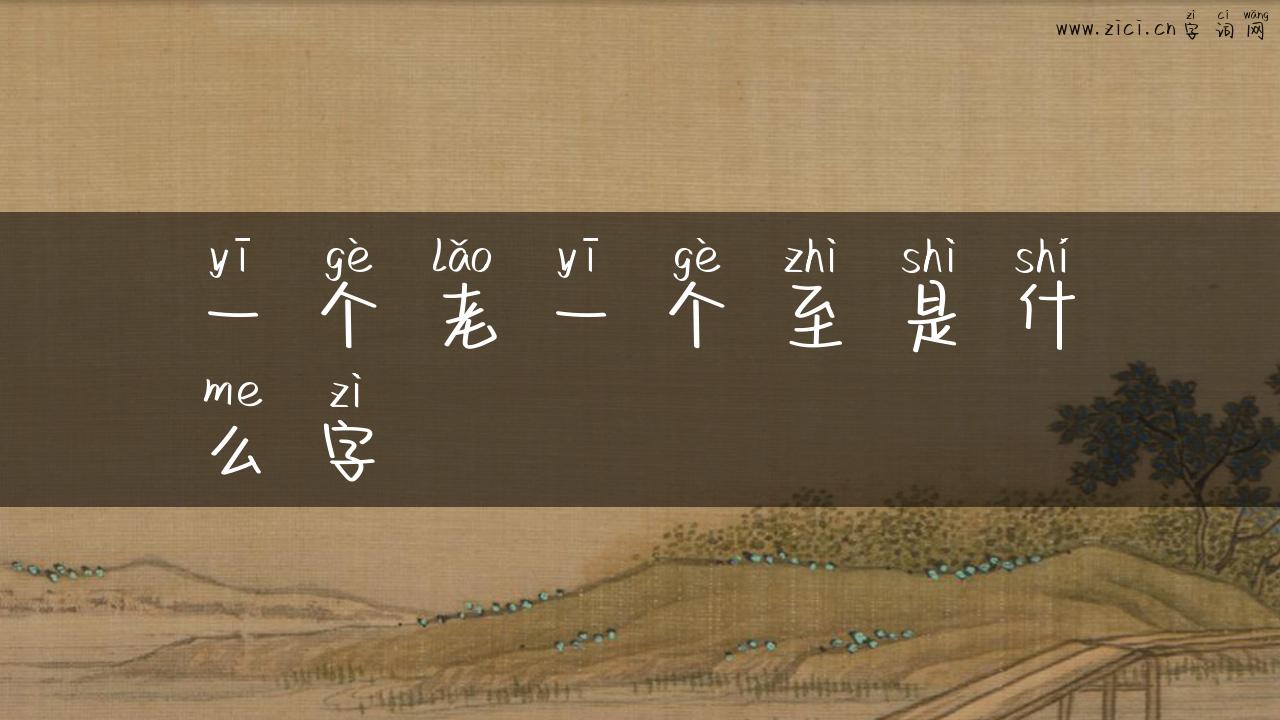 zì cí wǎng
www.zici.cn 字词网
yī gè lǎo yī gè zhì shì shí
一个老一个至是什
me zì
么字